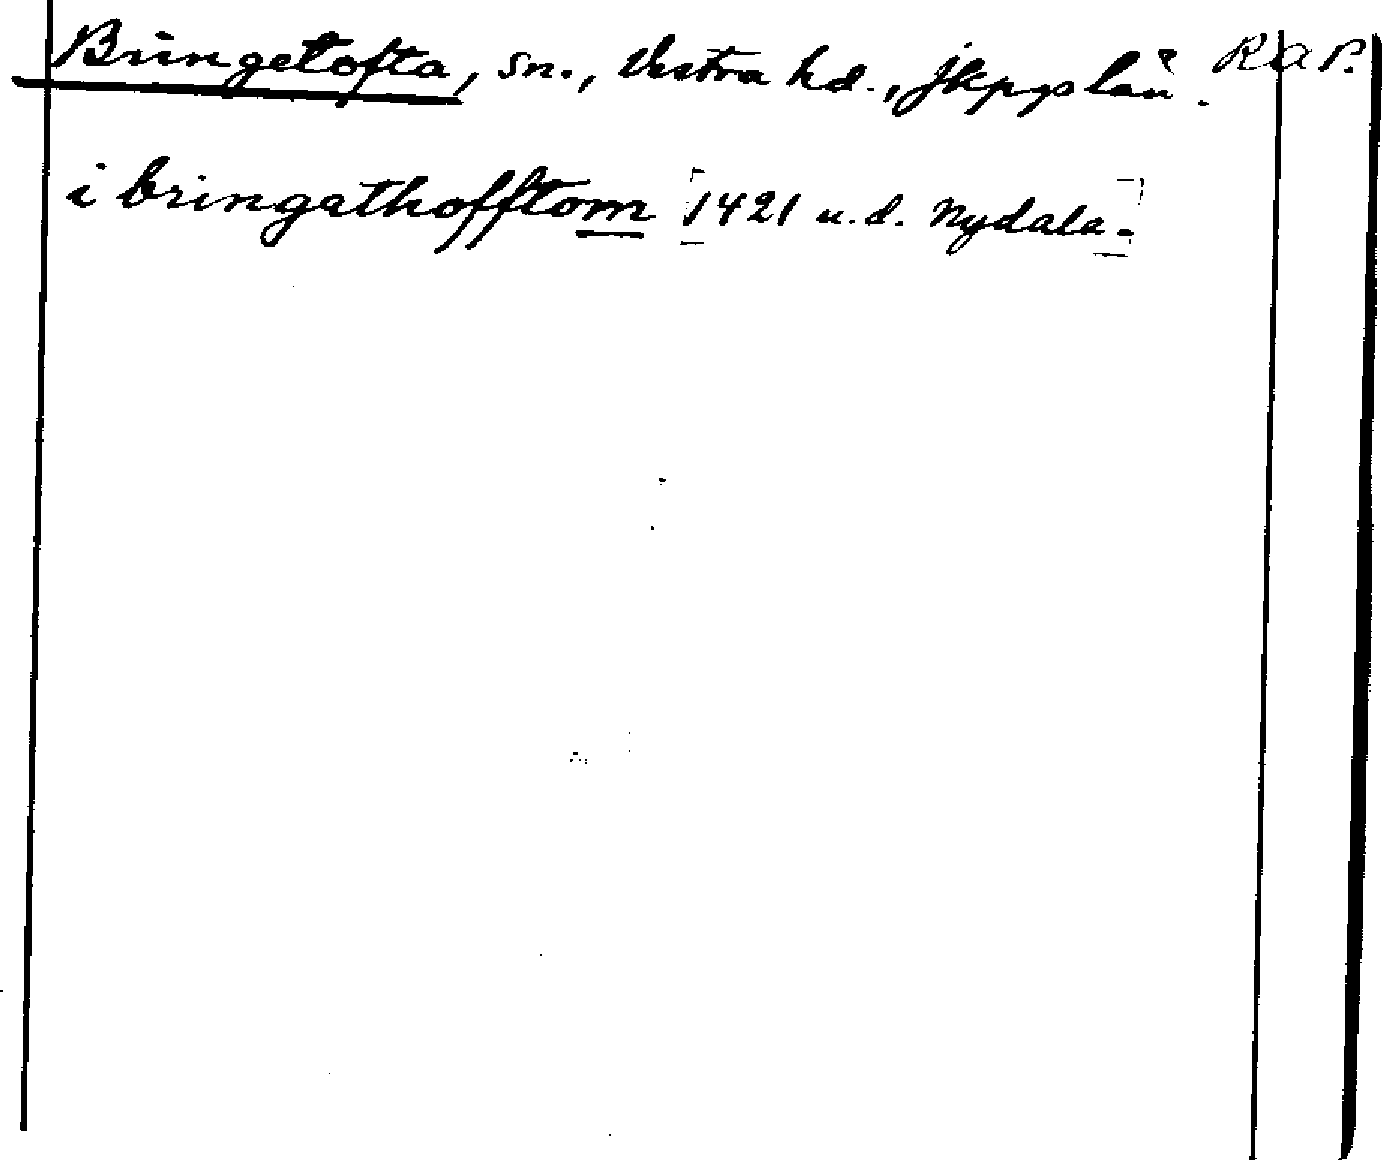 Bringetofta, sn., Västra hd., Jkpgs län. RAP.
i bringathofftom [1421 u.d. Nydala.]